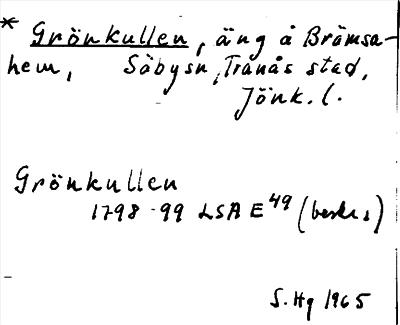 * Grönkullen, äng å Brämsa-
hem, Säbysn, Tranås stad,
Jönk. l.
Grönkullen
1798-99 LSA E49 (beskr.)
S. Hg 1965